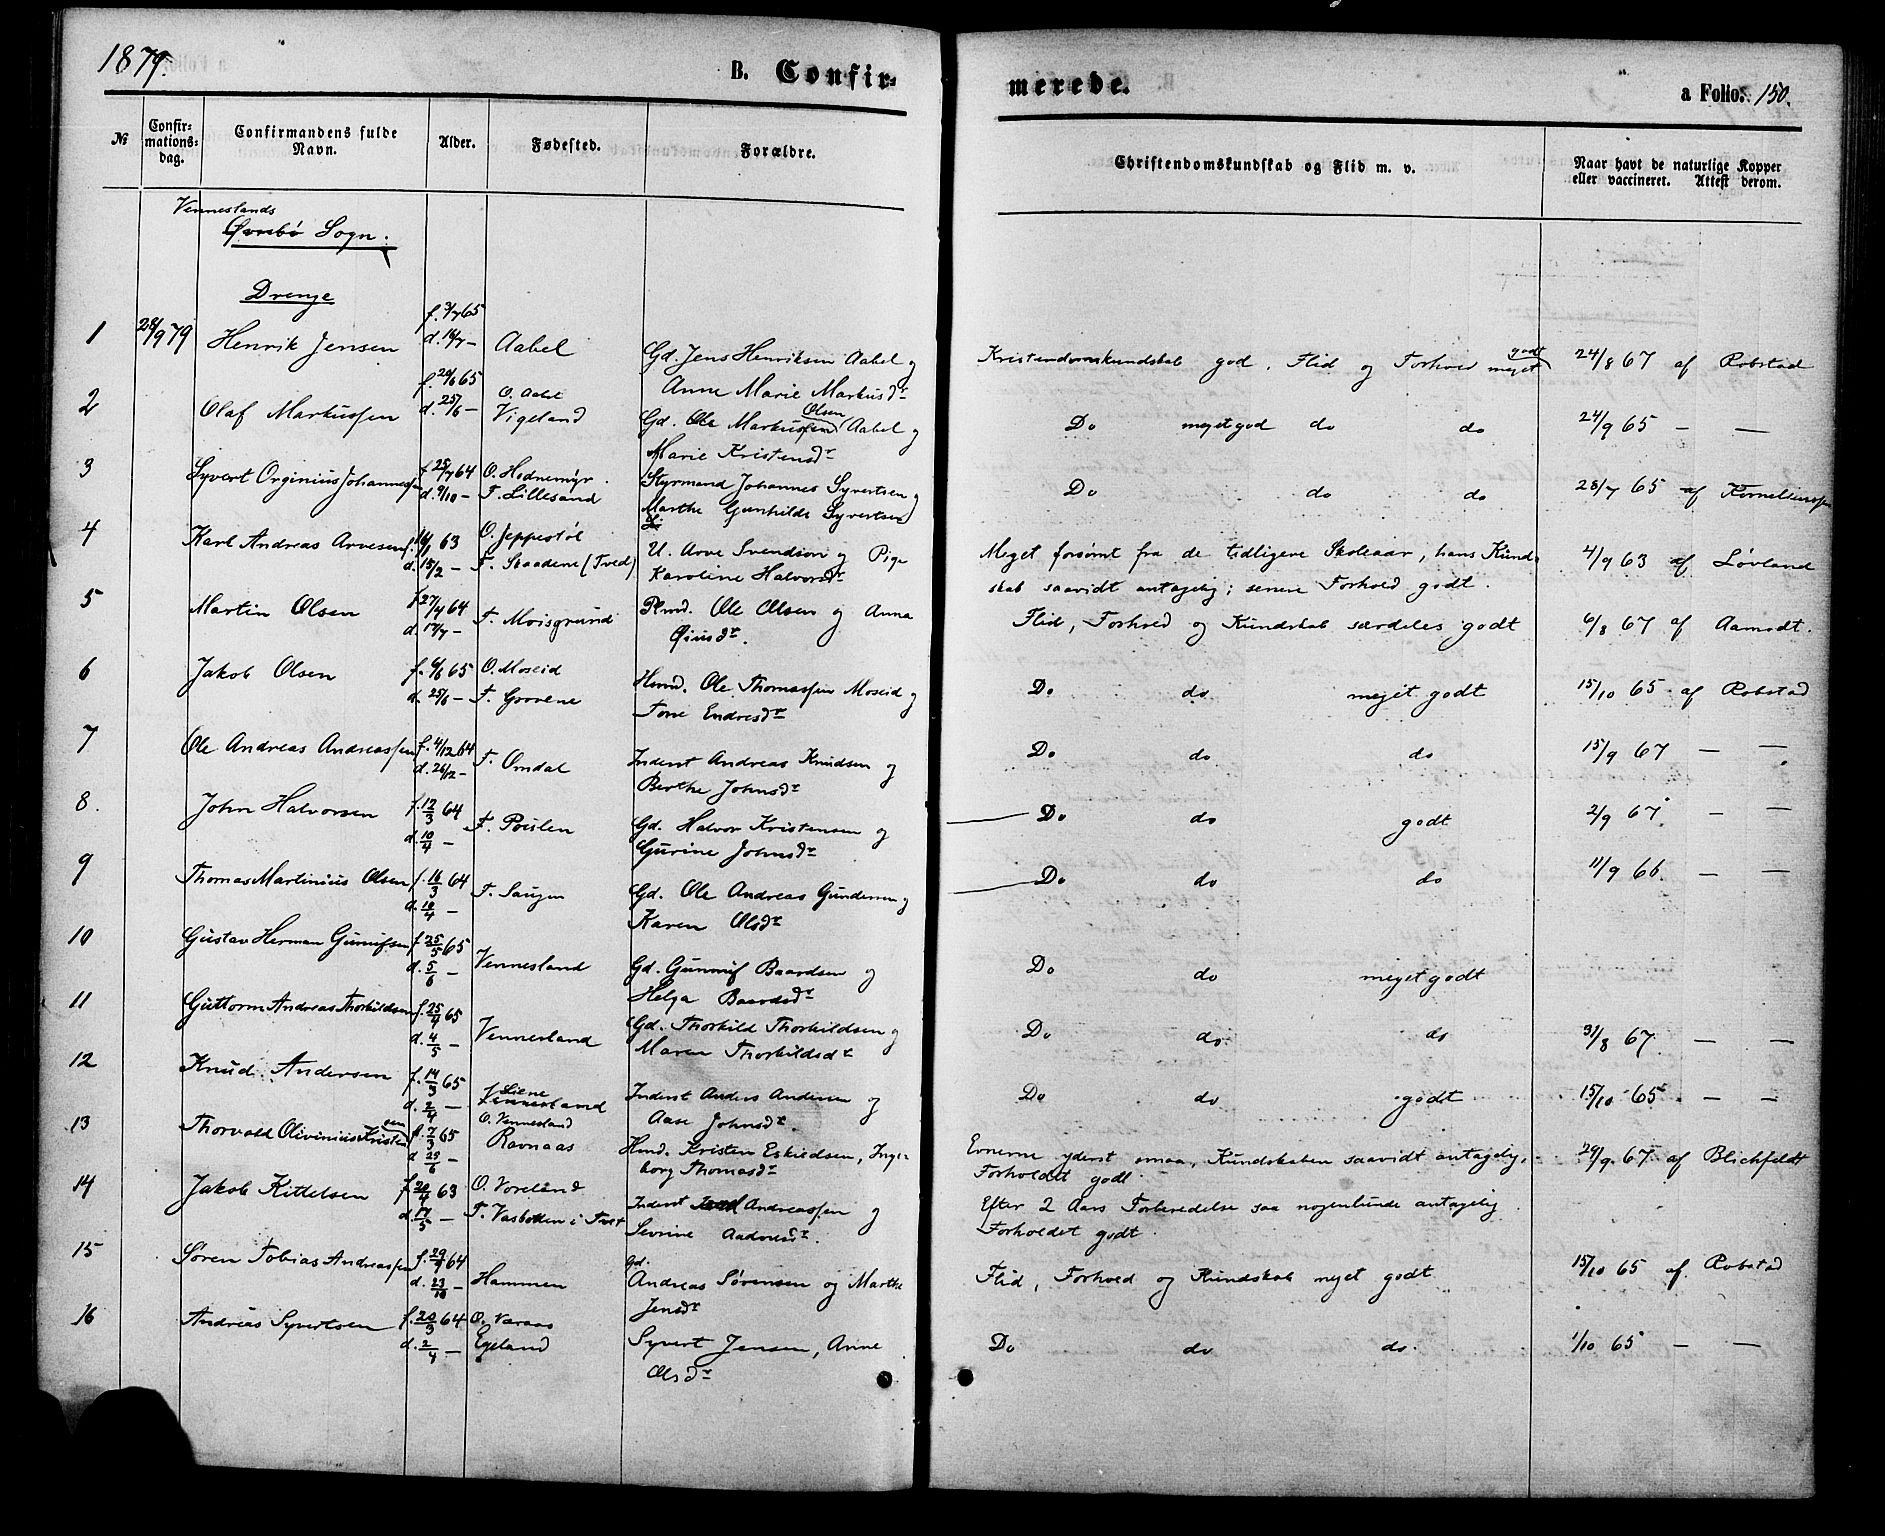 1879.
B. Confir-
merede.
a Folio: 150.
№
Confir-
mations-
dag.
Confirmandens fulde
Navn.
Alder.
Fødested.
Forældre.
Christendomskundskab og Flid m. v.
Naar havt de naturlige Kopper
eller vaccineret. Attest derom.
Venneslands
Øvrebø Sogn.
Drenge
1 28/9 79 Henrik Jensen f. 3/7 65 d. 16/7 – Aabel Gd. Jens Henriksen Aabel og
Anne Marie Markusdr
Kristendomskundskab god. Flid og Forhold meget godt 24/8 67 af Robstad
2 Olaf Markussen f. 20/6 65 d. 25/6 – O. Aabel
Vigeland Gd. Ole Markussen Olsen Aabel og
Marie Kristensdr
Do meget god do do 24/9 65 – —
3 Syvert Orginius Johannessen f. 25/7 64 d. 9/10 – O. Hednemyr.
F. Lillesand Styrmand Johannes Syvertsen og
Marthe Gunhilde Syvertsen
Do do do 28/7 65 af Korneliussen
4 Karl Andreas Arvesen 63 d. 15/2 – O. Jeppestøl
F. Skaadene (Tved) U. Arve Svendson og Pige
Karoline Halvorsdr
Meget forsømt fra de tidligere Skoleaar, hans Kund-
skab saavidt antagelig; senere Forhold godt. 4/9 63 af Løvland
5 Martin Olsen f. 27/4 64 d. 17/7 – F. Moisgrund Plmd. Ole Olsen og Anna
Flid, Forhold og Kundskab særdeles godt 6/8 67 af Aamodt.
6 Jakob Olsen f. 6/6 65 d. 25/6 – O. Moseid
F. Grovene Hmd. Ole Thomassen Moseid og
Tone Endresdr
Do do. meget godt 15/10 65 af Robstad
7 Ole Andreas Andreassen f. 4/12 64 d. 26/12 – F. Omdal Inderst Andreas Knudsen og
Berthe Johnsdr
Do do do 15/9 67 — —
8. John Halvorsen f. 12/3 64 d. 10/4 – F. Poulen Gd. Halvor Kristensen og
Gurine Johnsdr
Do do godt 2/9 67. – —
9 Thomas Martinius Olsen f. 16/3 64 d. 10/4 – F. Saugen Gd. Ole Andreas Gundersen og
Karen Olsdr
Do do do 11/9 66. — —
10 Gustav Herman Gunufsen f. 25/5 65 d. 5/6 – Vennesland Gd. Gunnuf Baardsen og
Helga Baardsdr
Do do meget godt
11 Guttorm Andreas Thorkildsen f. 25/4 65 d. 4/5 – Vennesland Gd. Thorkild Thorkildsen og
Maren Thorkildsdr
Do do do 31/8 67. — —
12 Knud Andersen f. 14/3 65 d. 2/4 – Vennesland Inderst Anders Andersen og
Aase Johnsdr.
Do do godt 15/10 65 — —
13 Thorvald Olivinius Kristensen f. 7/3 65 d. 25/6 – O. Vennesland
Ravnaas Hmd. Kristen Eskildsen, Inge-
borg Thomasdr
Evnerne yderst smaa, Kundskaben saavidt antagelig,
Forholdet godt. 29/9 67 af Blichfeldt
14 Jakob Kittelsen f. 20/4 63 d. 17/5 – O. Voreland
F. Vasbotten i Tvet Inderst Andreassen og
Sevrine Aadnesdr.
Efter 2 Aars Forberedelse saa nogenlunde antagelig.
Forholdet godt.
15 Søren Tobias Andreassen f. 29/9 64 d. 23/10 – Hammen Gd.
Andreas Sørensen og Marthe
Jensdr
Flid, Forhold og Kundskab meget godt 15/10 65 af Robstad
16 Andreas Syvertsen f. 20/3 64 d. 2/4 – O. Varaas
Egeland Syvert Jensen, Anne
Olsdr
Do do do. 1/10 65 – —